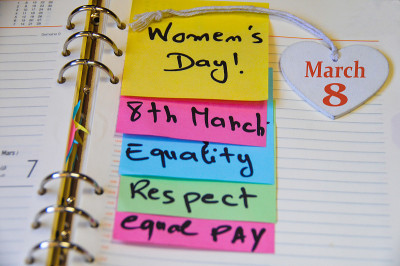 Women's
Day!
8th March
Equality
Respect
equal PAY
March
8
Mars:
7